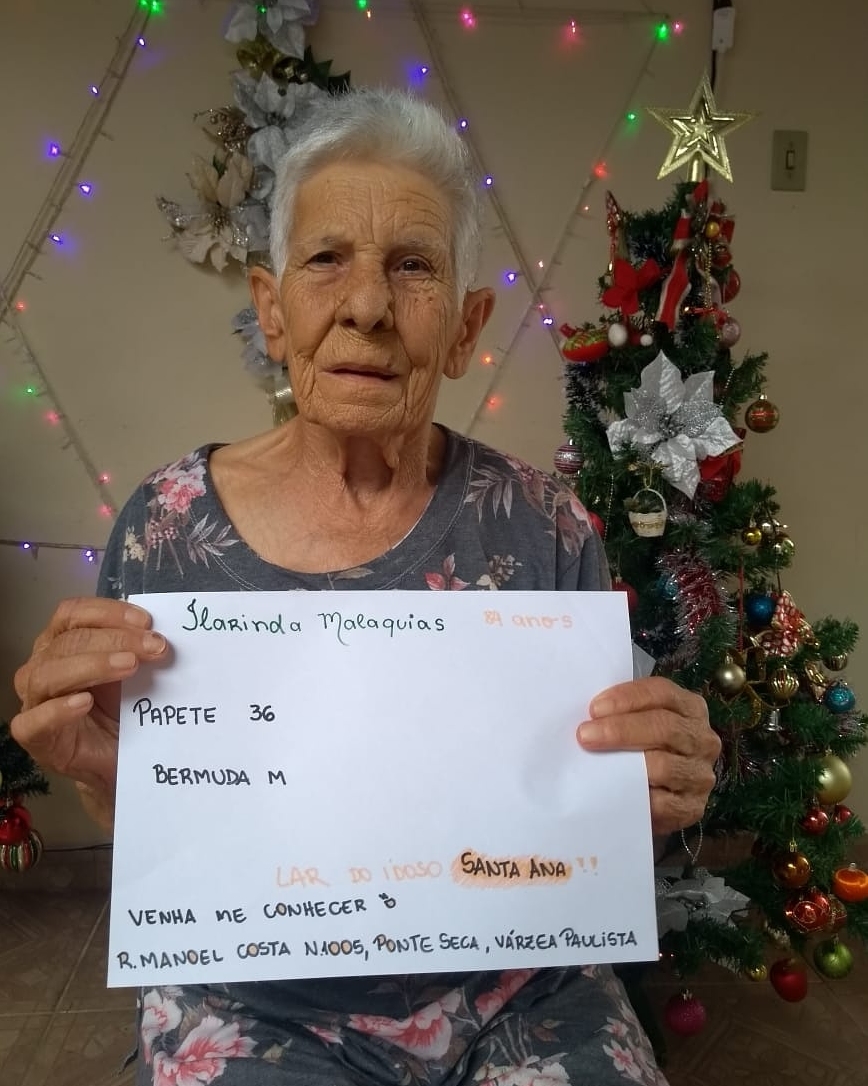 Ilarinda Malaquias 89 anos
PAPETE 36
BERMUDA M
LAR DO IDOSO SANTA ANA !!
VENHA ME CONHECER
R. MANOEL COSTA N.1005, PONTE SECA, VÁRZEA PAULISTA